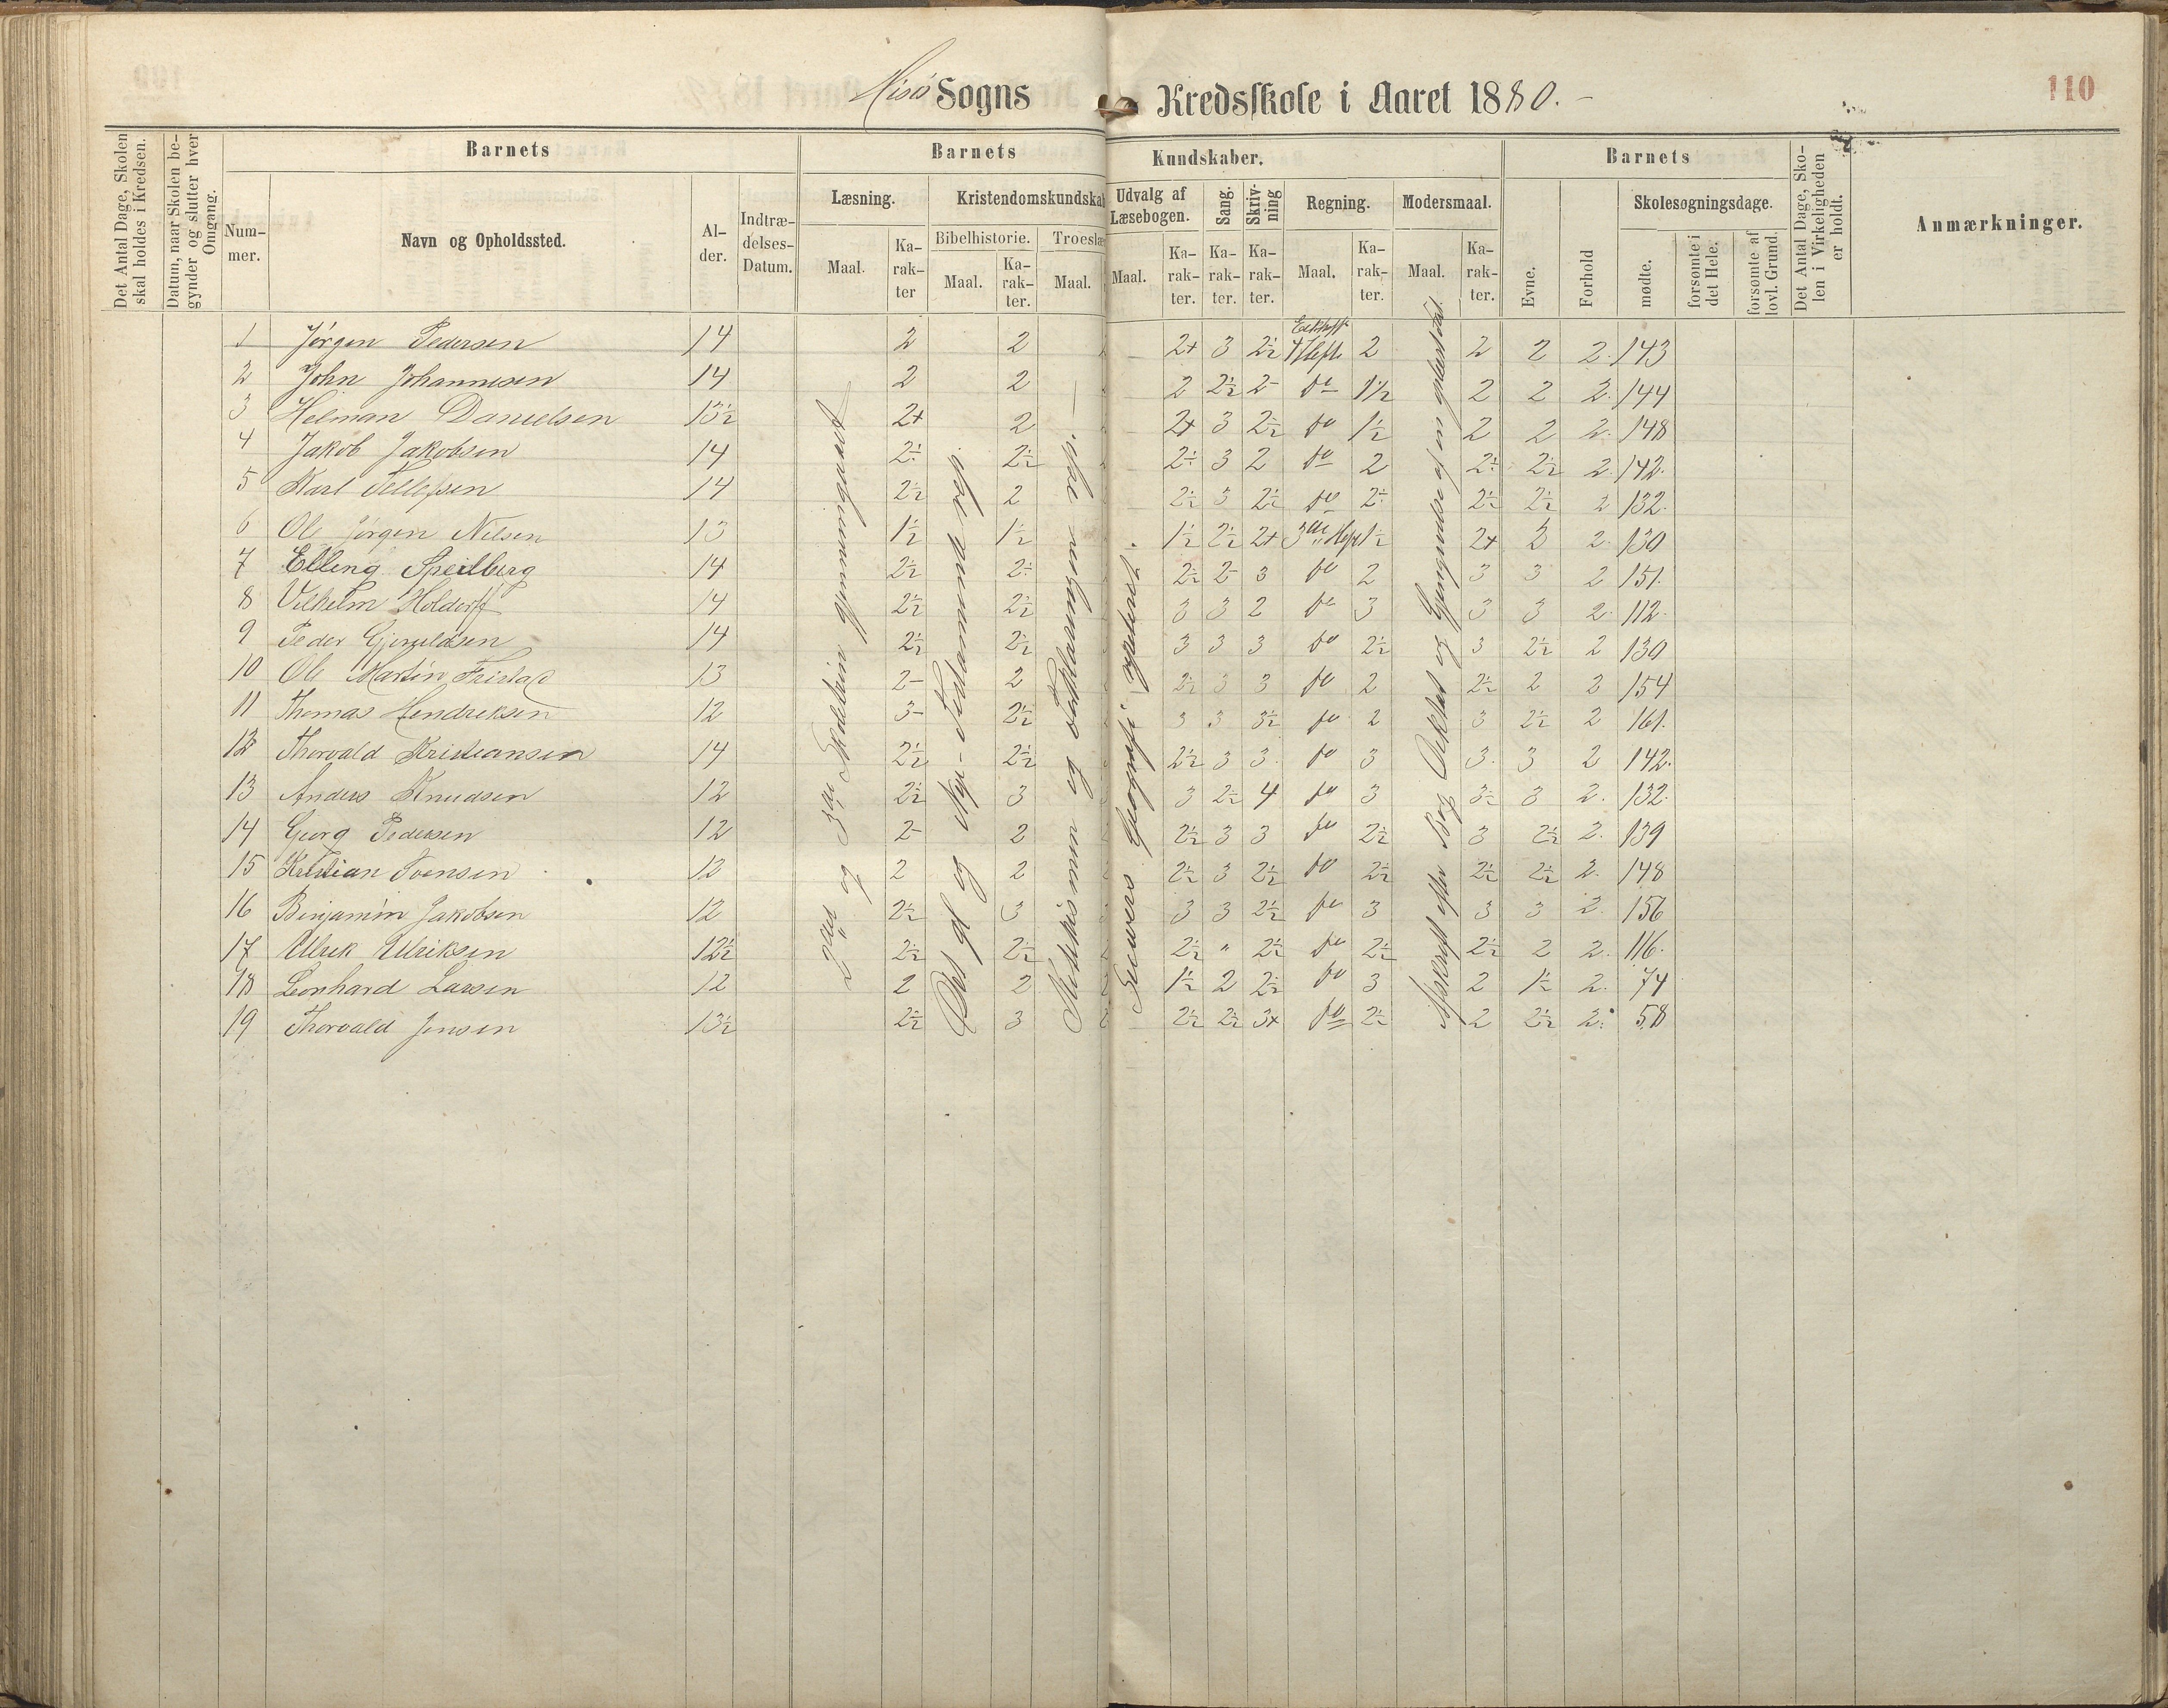 Hisø Sogns Kredsskole i Aaret 1880.-
110
Det Antal Dage, Skolen skal holdes i Kredsen.
Datum, naar Skolen begynder og slutter hver Omgang.
Barnets
Num-mer.
Navn og Opholdssted.
Al-der.
Indtræ-delses-Datum.
Barnets Kundskaber.
Læsning.
Maal.
Ka-rak-ter
Kristendomskundskab
Bibelhistorie.
Maal.
Ka-rak-ter.
Troeslær
Maal.
Udvalg af Læsebogen.
Maal.
Ka-rak-ter.
Sang.
Ka-rak-ter.
Skriv-ning
Ka-rak-ter.
Regning.
Maal.
Ka-rak-ter.
Modersmaal.
Maal.
Ka-rak-ter.
Barnets
Evne.
Forhold
Skolesøgningsdage.
mødte.
forsømte i det Hele.
forsømte af lovl. Grund.
Det Antal Dage, Sko-len i Virkeligheden er holdt.
Anmærkninger.
1 Jørgen Pedersen 14 2 2 2+ 3 2½ 4 Hefte 2 2 2 2. 143
2 John Johannesen 14 2 2 2 2½ 2- do 1½ 2 2 2. 144
3 Helman Danielsen 13½ 2+ 2 2+ 3 2½ do 1½ 2 2 2. 148
4 Jakob Jakobsen 14 2½ 2½ 2½ 3 2 do 2 2½ 2½ 2. 142.
5 Karl Tellefsen 14 2½ 2 2½ 3 2½ do 2½ 2½ 2½ 2 132.
6 Ole Jørgen Nilsen 13 1½ 1½ 1½ 2½ 2+ 3die Hefte 1½ 2+ 2 2. 130
7 Elling Speilberg 14 2½ 2½ 2½ 2- 3 do 2 3 3 2 151.
8 Vilhelm Holdorff 14 2½ 2½ 3 3 2 do 3 3 3 2. 112.
9 Peder Gjeruldsen 14 2½ 2½ 3 3 3 do 2½ 3 2½ 2 130
10 Ole Martin Fristad 13 2- 2 2½ 3 3 do 2 2½ 2 2 154
11 Thomas Hendriksen 12 3- 2½ 3 3 3½ do 2 3 2½ 2 161.
12 Thorvald Kristiansen 14 2½ 2½ 2½ 3 3. do 3 3. 3 2 142.
13 Anders Knudsen 12 2½ 3 3 2½ 4 do 3 3½ 3 2. 132.
14 Georg Pedersen 12 2- 2 2½ 3 3 do 2½ 3 2½ 2. 139
15 Kristian Svensen 12 2 2 2½ 3 2½ do 2½ 2½ 2½ 2. 148
16 Benjamin Jakobsen 12 2½ 3 3 3 2½ do 3 3 3 2. 156
17 Ulrik Ulriksen 12½ 2½ 2½ 2½ " 2½ do 2½ 2½ 2 2. 116.
18 Leonhard Larsen 12 2 2 1½ 2 2½ do 3 2 1½ 2. 74
19 Thorvald Jensen 13½ 2½ 3 2½ 2½ 3+ do 2½ 2 2½ 2. 58
2den og 3die Skoletrin gjennemgaaet
Det gl og Nye-Testamente rep.
Katekismen og Forklaringen rep. —
Geografi repeteret.
Afskrift efter Bog Diktat og Gjengivelse af en